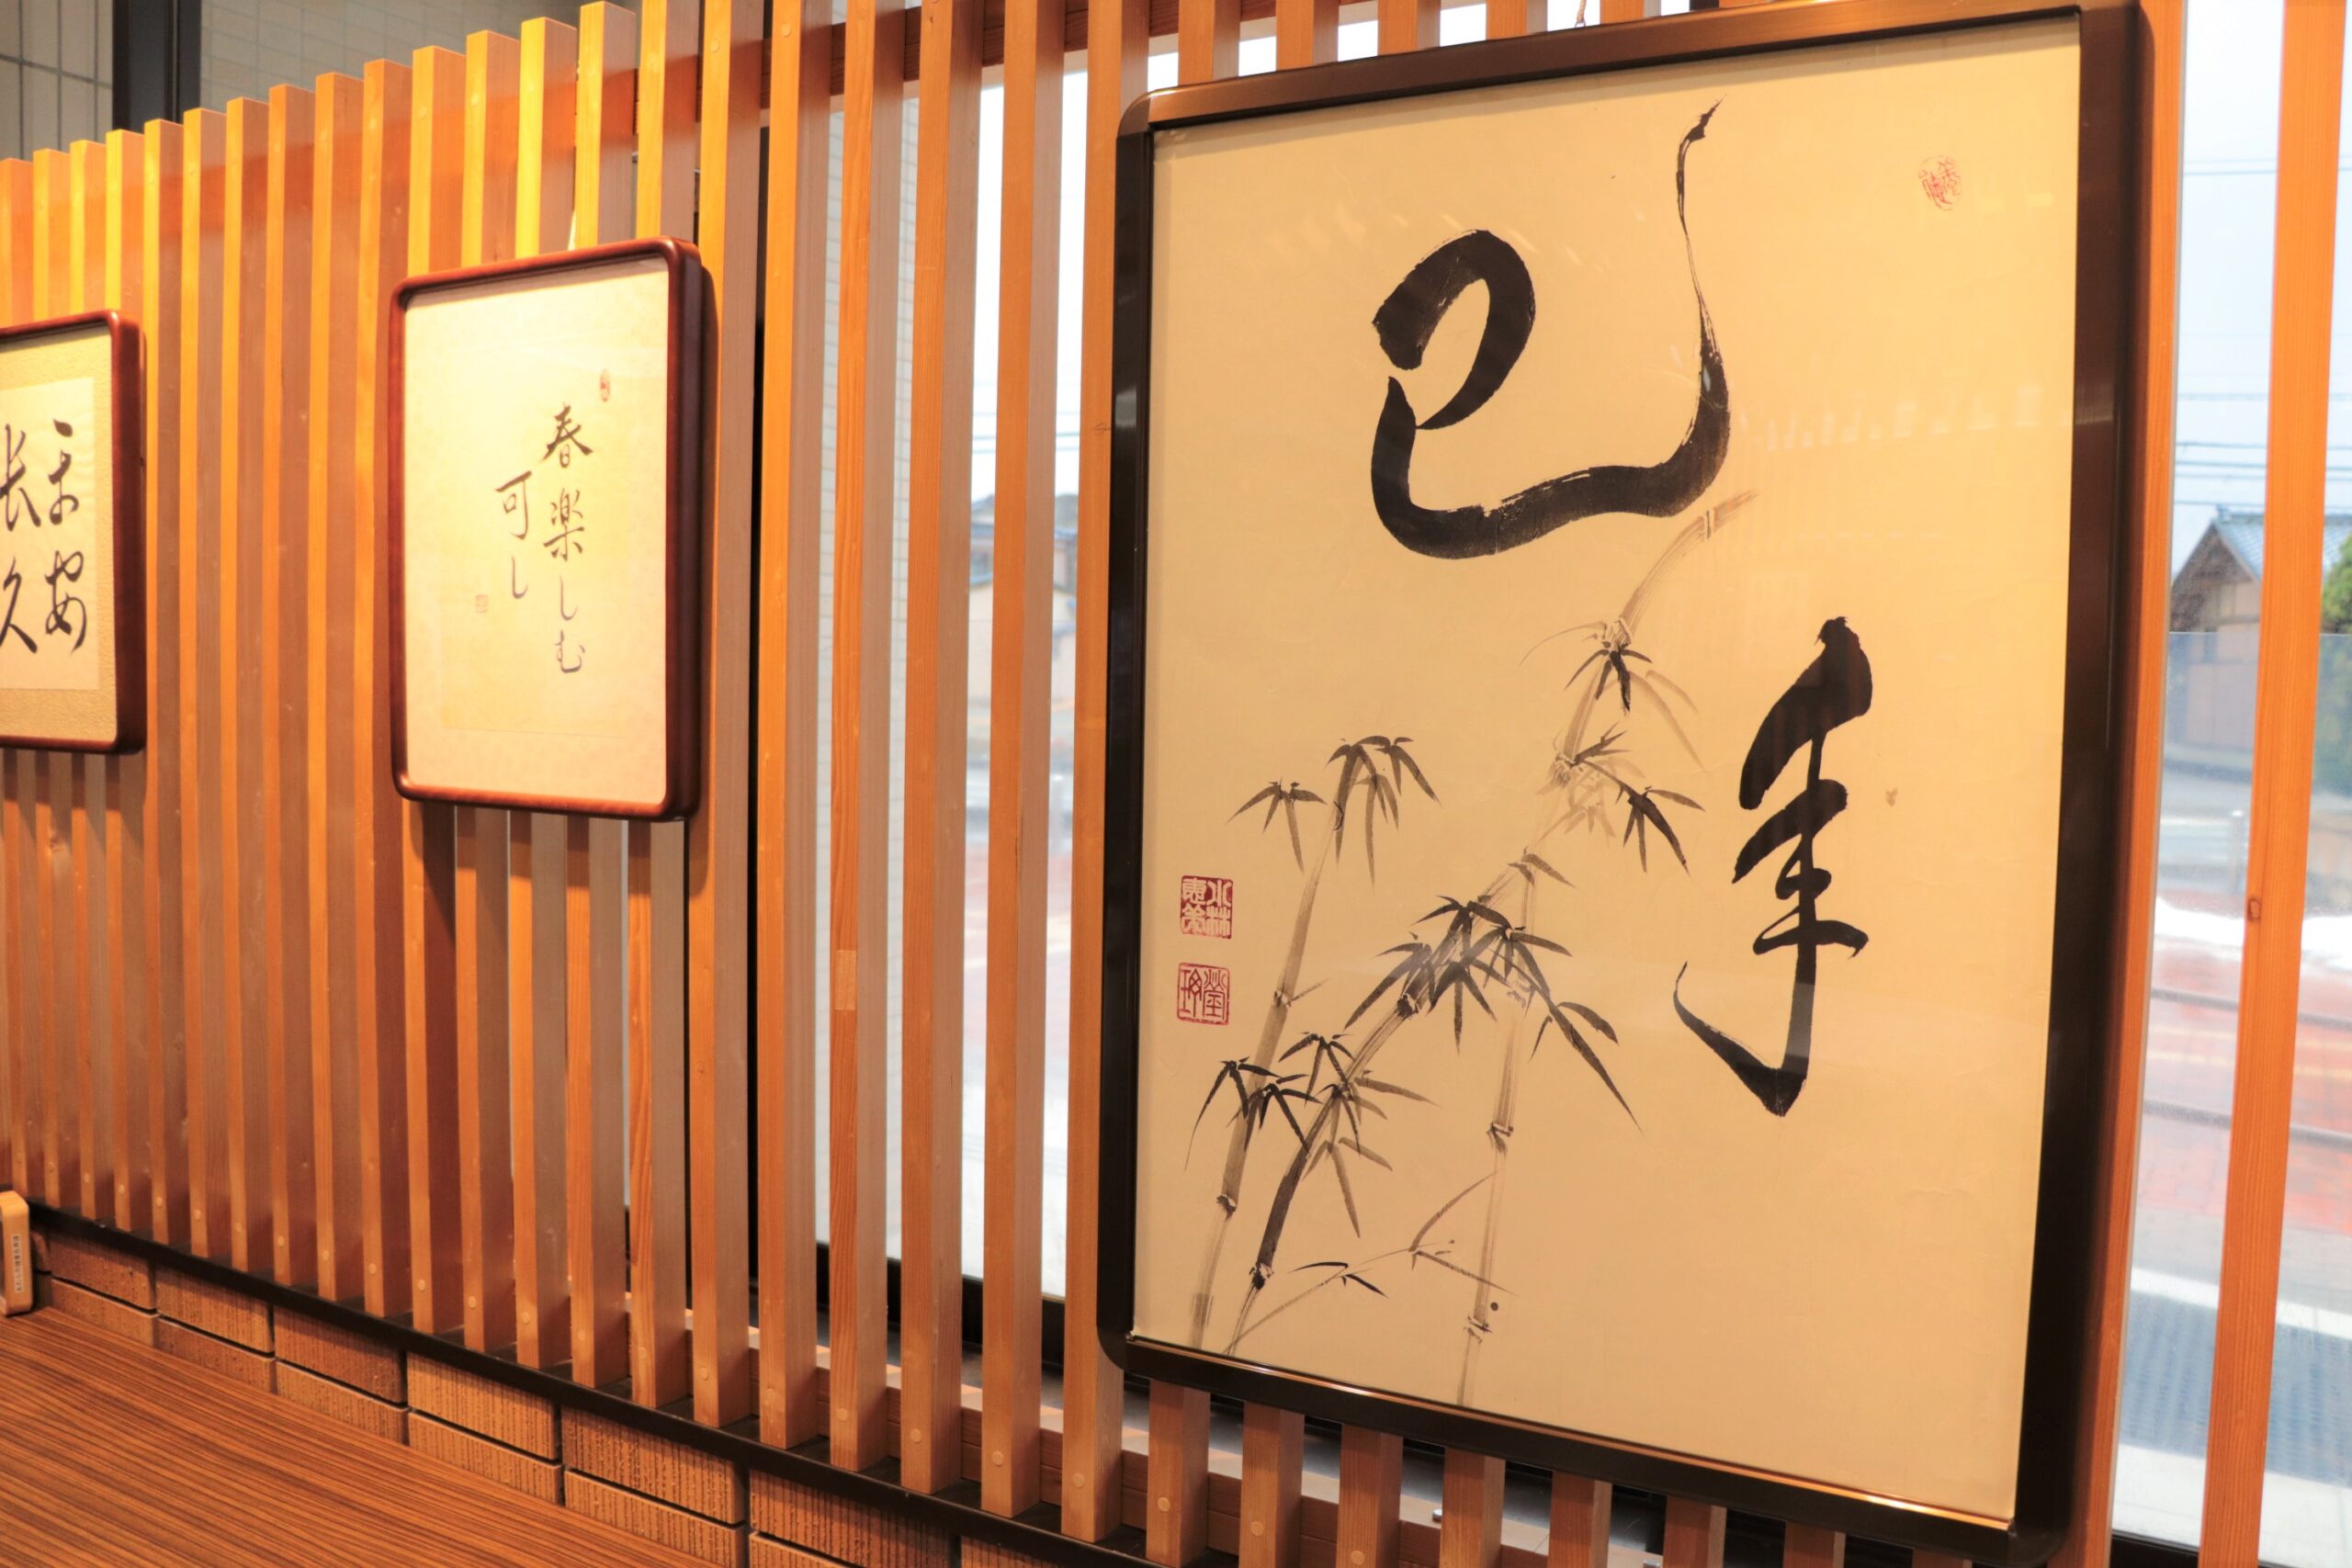 巳年
春楽しむ
可し
平安
長久